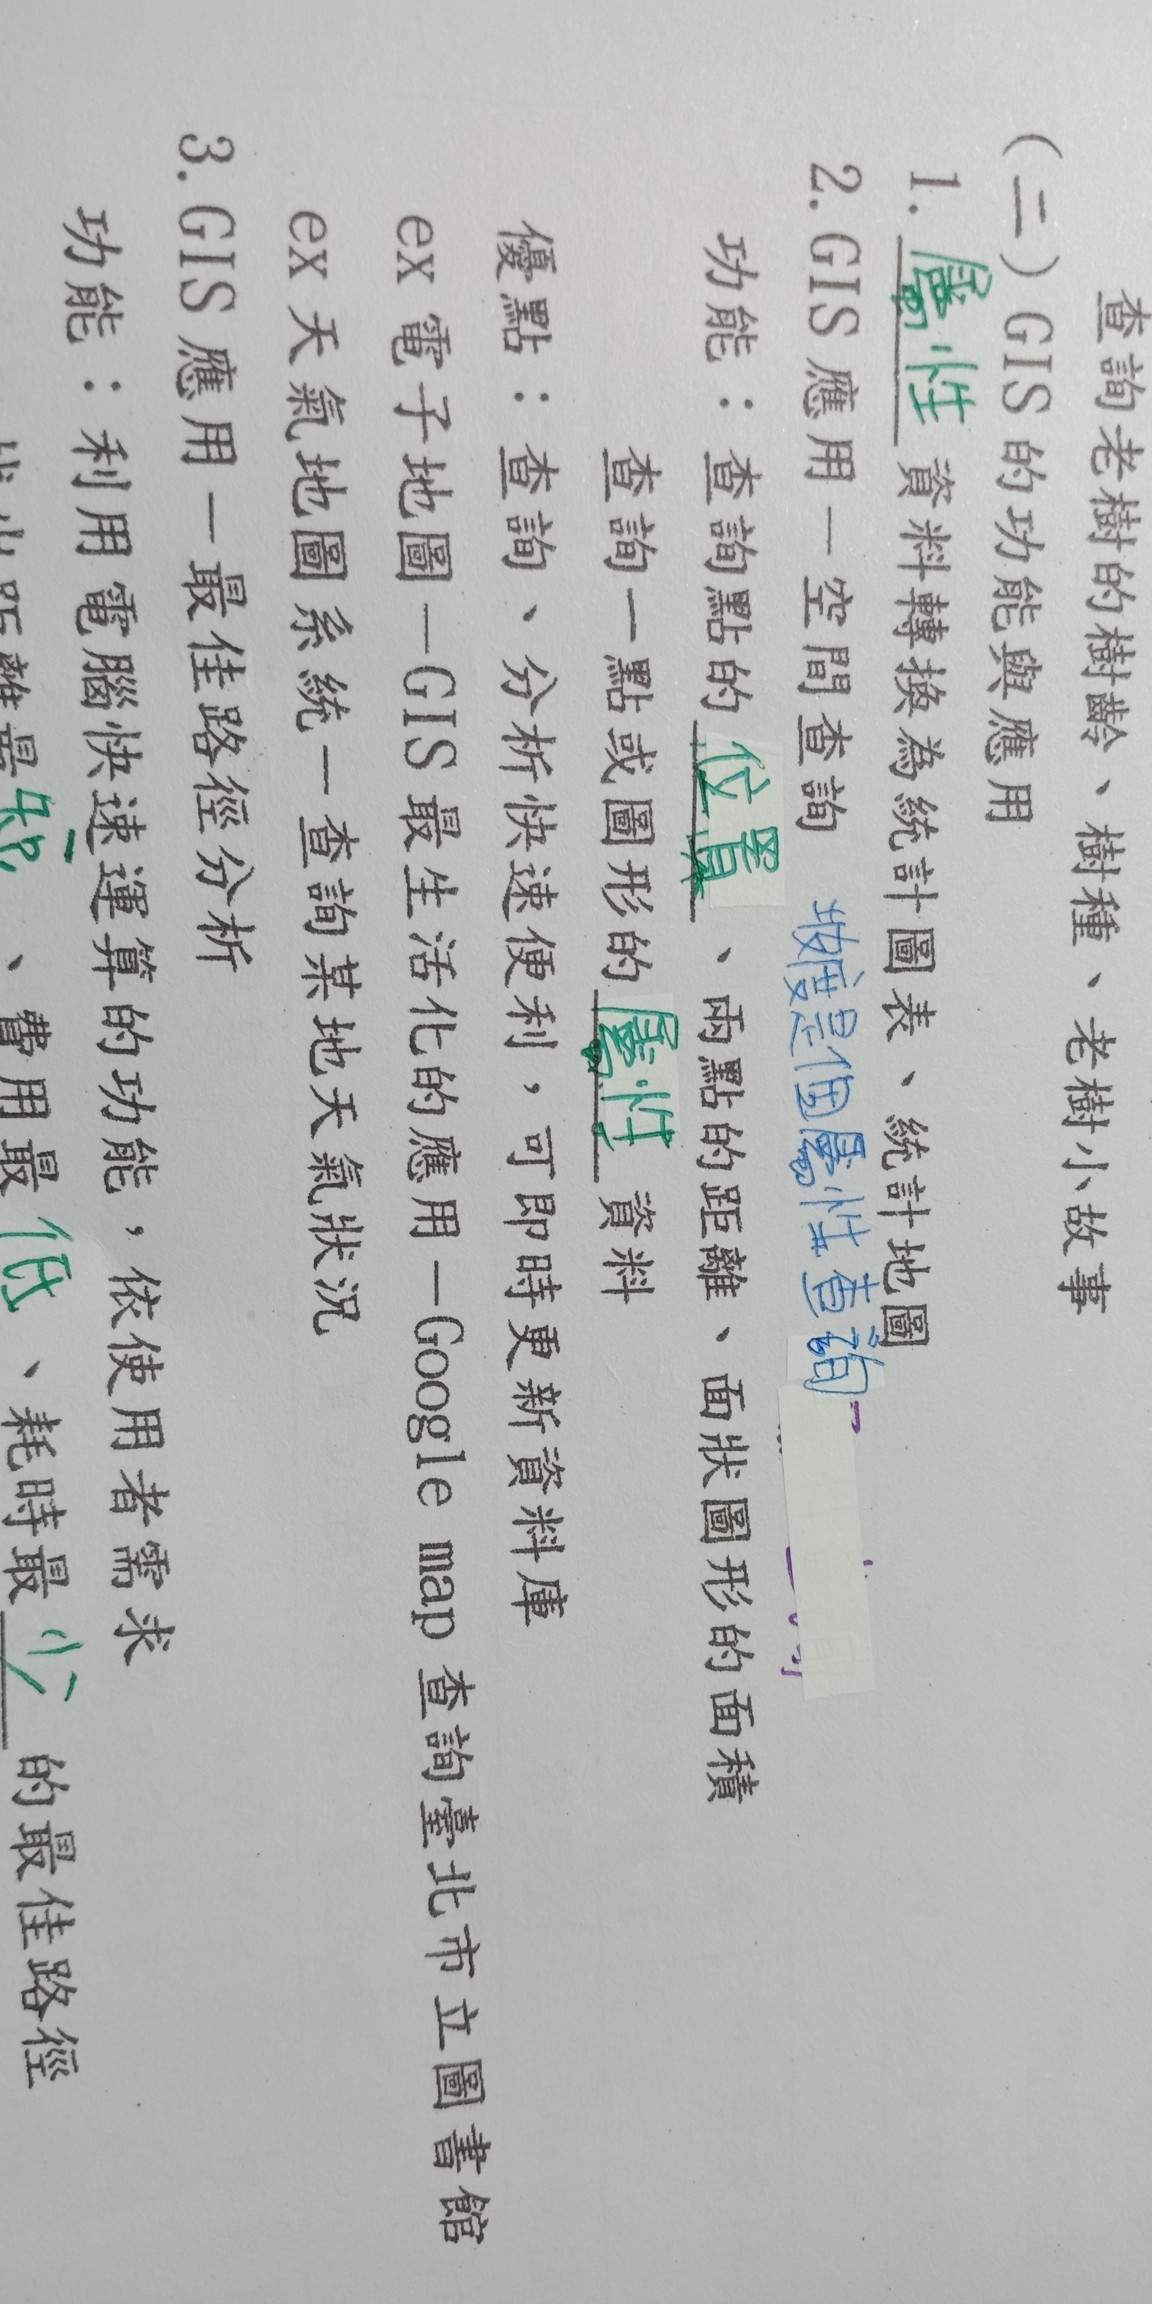 查詢老樹的樹齡、樹種、老樹小故事
(二)GIS的功能與應用
1.屬性資料轉換為統計圖表、統計地圖
2.GIS應用—空間查詢 坡度是個屬性查詢
功能：查詢點的位置、兩點的距離、面狀圖形的面積
查詢一點或圖形的屬性資料
優點：查詢、分析快速便利，可即時更新資料庫
ex電子地圖—GIS最生活化的應用—Google map查詢臺北市立圖書館
ex天氣地圖系統—查詢某地天氣狀況
3.GIS應用—最佳路徑分析
功能：利用電腦快速運算的功能，依使用者需求
找出距離最短、費用最低、耗時最少的最佳路徑